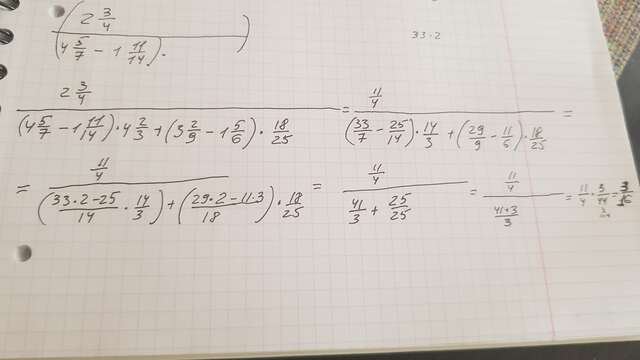 (2 3/4)/(4 5/7 - 1 11/14).
33·2
(2 3/4)/((4 5/7 - 1 11/14)·4 2/3 + (3 2/9 - 1 5/6)·18/25) = (11/4)/((33/7 - 25/14)·14/3 + (29/9 - 11/6)·18/25) =
= (11/4)/(((33·2-25)/14·14/3) + ((29·2-11·3)/18)·18/25) = (11/4)/(41/3 + 25/25) = (11/4)/((41+3)/3) = 11/4·3/44 = 3/16